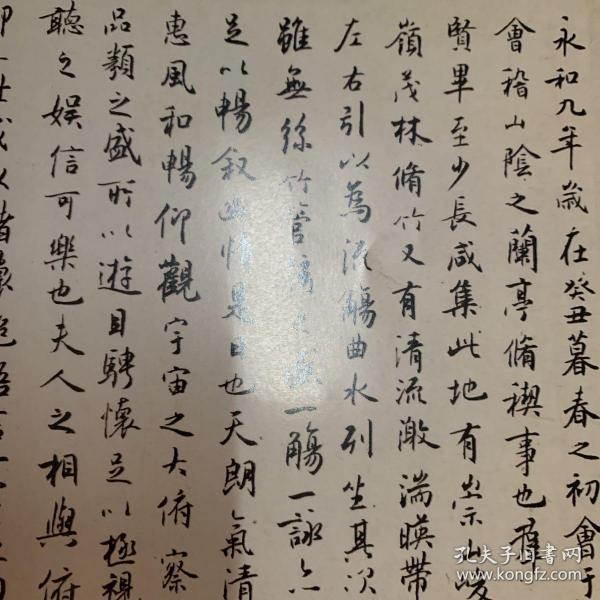 永和九年歲在癸丑暮春之初會于
會稽山陰之蘭亭脩禊事也羣
賢畢至少長咸集此地有崇山峻
嶺茂林脩竹又有清流激湍暎帶
左右引以為流觴曲水列坐其次
雖無絲竹管弦之盛一觴一詠亦
足以暢叙幽情是日也天朗氣清
惠風和暢仰觀宇宙之大俯察
品類之盛所以遊目騁懷足以極視
聽之娛信可樂也夫人之相與俯
孔夫子旧书网
www.kongfz.com